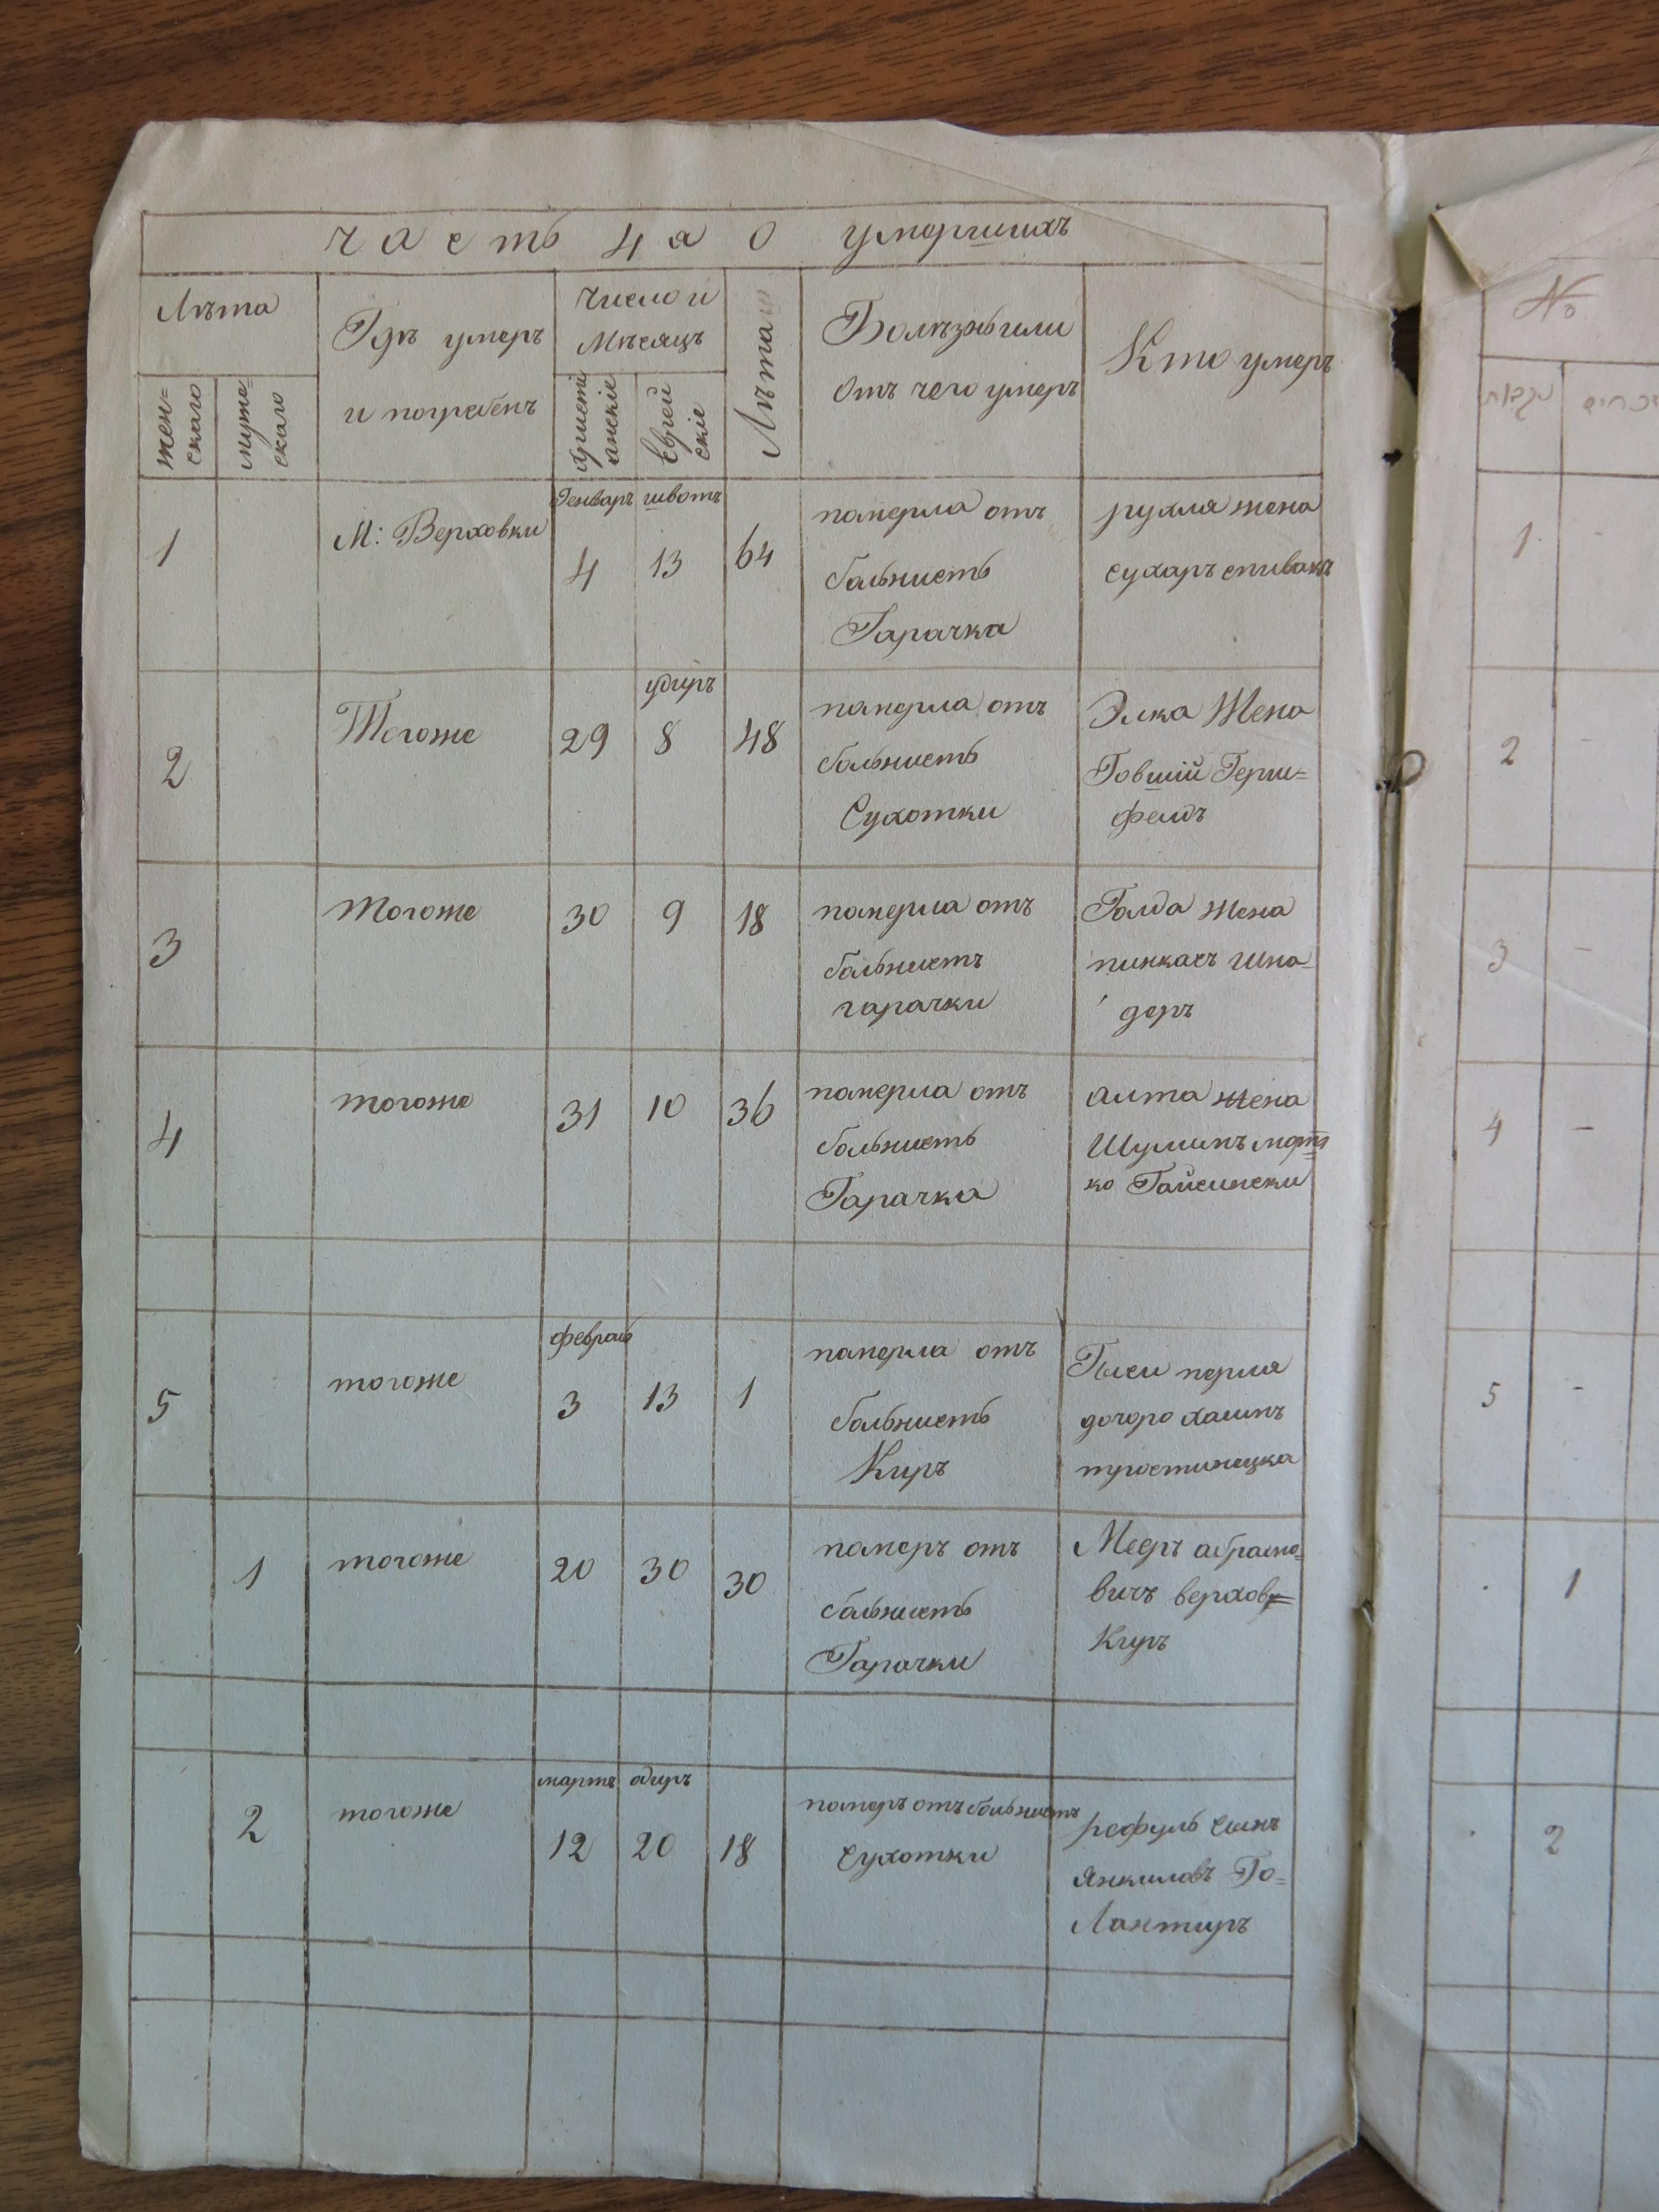 часть 4а о умершихъ
Лѣта
жен=
скаго
муже=
скаго
Гдѣ умеръ
и погребенъ
Число и
Мѣсяцъ
христі
анскіе
Еврей
скіе
Лѣта
Болѣзнь или
отъ чего умеръ
Кто умеръ
1
М: Верховки
Генваръ
4
швотъ
13
64
памерла отъ
бальнисть
Гарачка
рухля жена
сухаръ спивакъ
2
Тогоже
29
удиръ
8
48
памерла отъ
бальнисть
Сухотки
Элка Жена
Говшій Герш=
фелдъ
3
тогоже
30
9
18
памерла отъ
бальнистъ
гарачки
Голда жена
пинкасъ шна=
деръ
4
тогоже
31
10
36
памерла отъ
бальнисть
Гарачка
алта жена
Шулимъ морт
ко Гайсински
5
тогоже
февраль
3
13
1
памерла отъ
бальнисть
Киръ
перля
дочоро хаимъ
тростинецка
1
тогоже
20
30
30
памеръ отъ
бальнисть
Гарачки
Мееръ абрамо=
вичъ верхов=
Киръ
2
тогоже
мартъ
12
адиръ
20
18
памеръ отъ бальнистъ
сухотки
рефуль сынъ
Янкиловъ Го=
Лантиръ
№
נקבות
זכרים
1
-
2
-
3
-
4
-
5
-
1
2